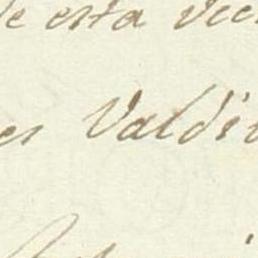 de esta veci
es Valdi